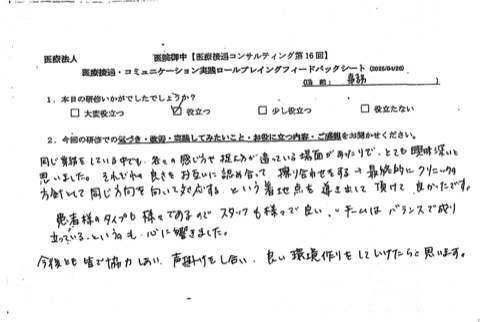 医療法人 医院御中【医療接遇コンサルティング第16回】
医療接遇・コミュニケーション実践ロールプレイングフィードバックシート(2025/04/26)
事務 )
1.本日の研修いかがでしたでしょうか?
□ 大変役立つ ☑ 役立つ □ 少し役立つ □ 役立たない
2.今回の研修での気づき・改善・実践してみたいこと・お役に立つ内容・ご感想をお聞かせください。
同じ業務をしている中でも、各々の感じ方や捉え方が違っている場面があったりで、とても興味深いと
思いました。それぞれ良さをお互いに認め合って擦り合わせをする→最終的にクリニックの
方針として同じ方向を向いて対応する、という着地点を導き出して頂けて良かったです。
患者様のタイプも様々であるのでスタッフも様々で良い、チームはバランスで成り
立っている、というのも心に響きました。
今後とも皆で協力し合い、声掛けをし合い、良い環境作りをしていけたらと思います。